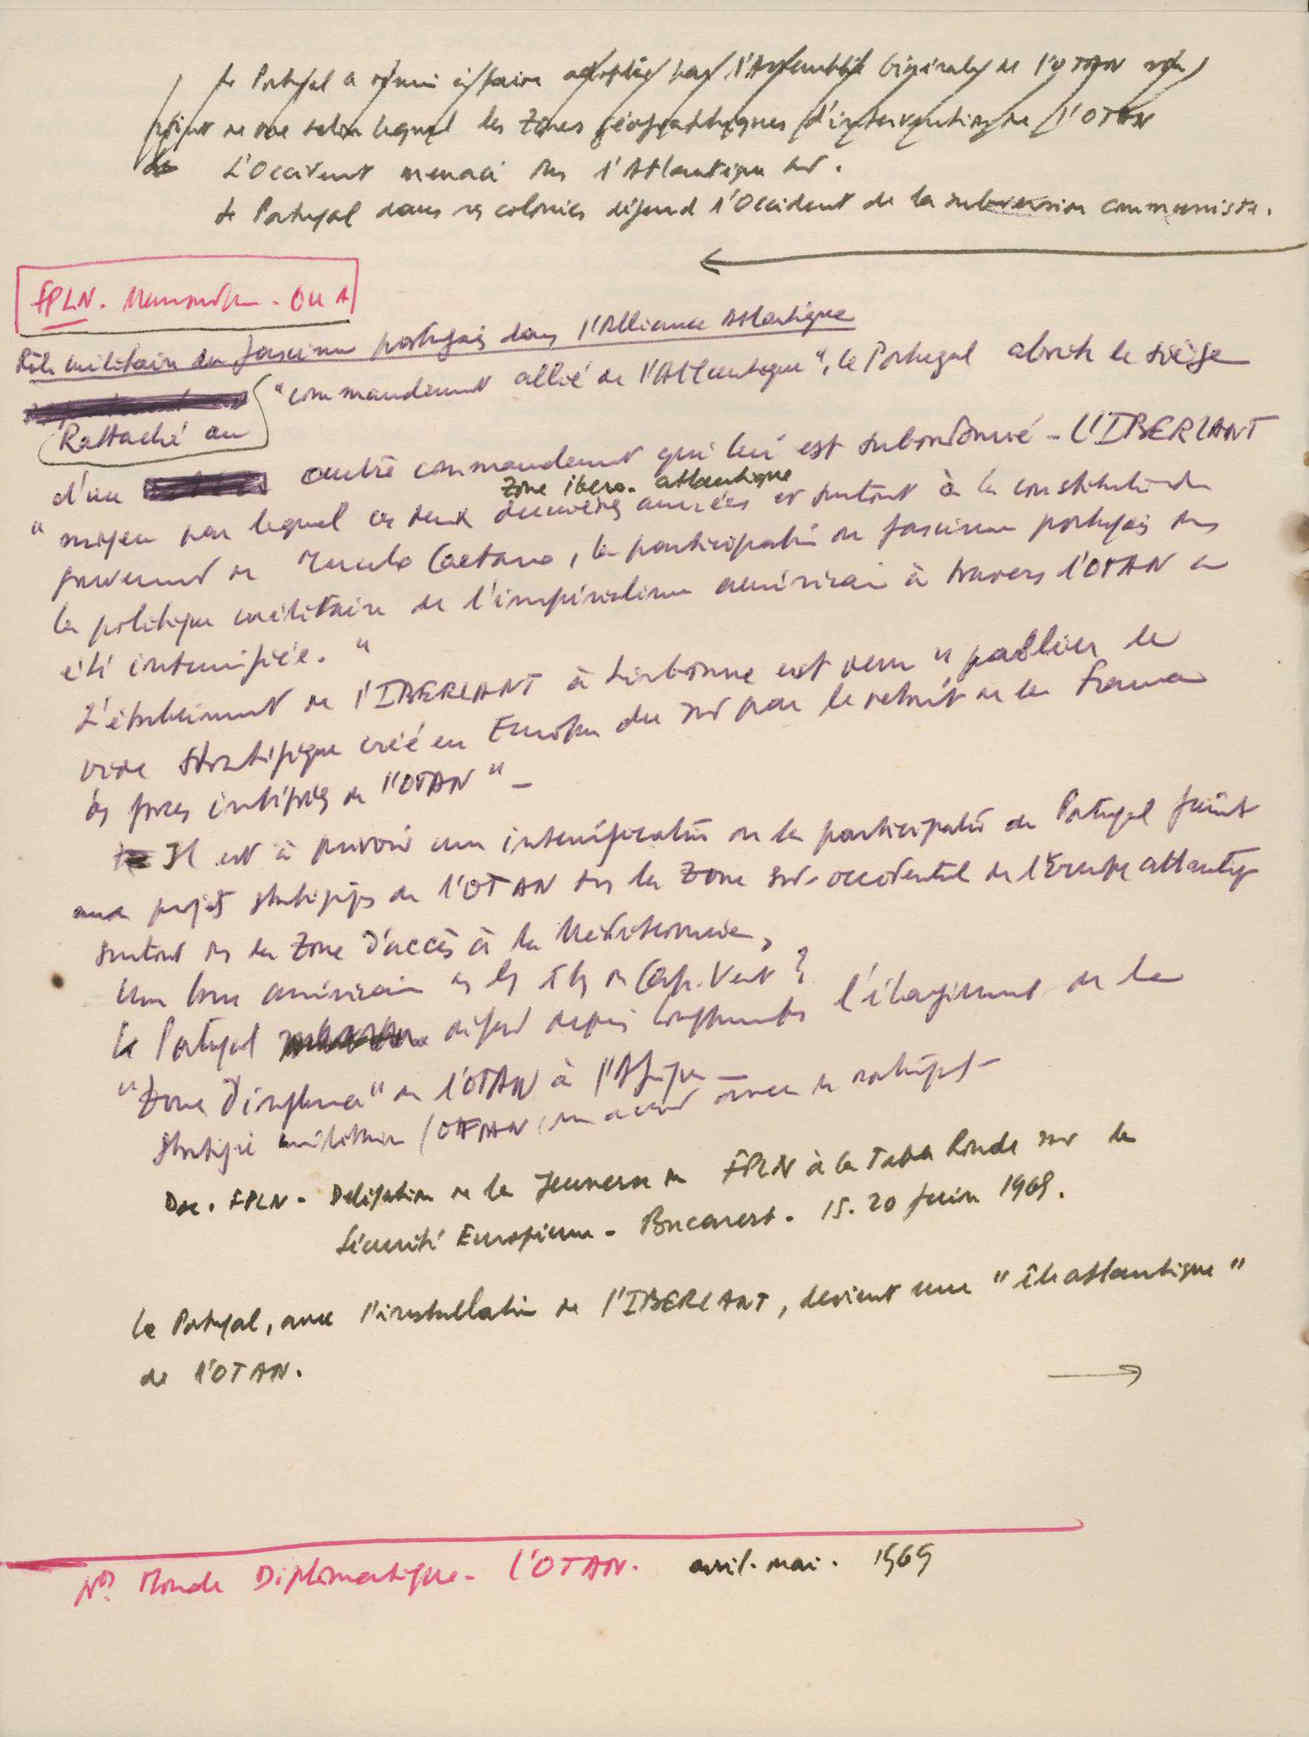 Le Portugal a réussi à faire adopter par l'Assemblée Générale de l'OTAN son
point de vue selon lequel les zones géographiques d'intervention de l'OTAN
L'Occident menacé ds l'Atlantique sud.
Le Portugal dans ses colonies défend l'Occident de la subversion communiste.
FPLN. Memorandum - OUA
Rôle militaire du fascisme portugais dans l'Alliance Atlantique
Rattaché au "commandement allié de l'Atlantique", le Portugal abrite le siège
d'un autre commandement qui lui est subordonné - L'IBERLANT
zone ibero-atlantique
" moyen par lequel ces deux dernières années et surtout à la constitution du
gouvernement de Marcelo Caetano, la participation du fascisme portugais ds
la politique militaire de l'impérialisme américain à travers l'OTAN a
été intensifiée. "
L'établissement de l'IBERLANT à Lisbonne est venu "pallier le
vide stratégique créé en Europe du sud par le retrait de la France
des forces intégrées de l'OTAN" -
Il est à prévoir une intensification de la participation du Portugal
aux projets stratégiques de l'OTAN ds la zone sud-occidentale de l'Europe atlantique
surtout ds la zone d'accès à la Méditerranée,
Une base américaine ds les Iles du Cap. Vert ?
Le Portugal défend depuis longtemps l'élargissement de la
"zone d'influence" de l'OTAN à l'Afrique -
Stratégie militaire (OTAN)
Doc. FPLN - Délégation de la Jeunesse du FPLN à la Table Ronde sur la
Sécurité Européenne - Bucarest - 15-20 Juin 1969.
Le Portugal, avec l'installation de l'IBERLANT, devient une "île atlantique"
de l'OTAN. →
No. Monde Diplomatique - L'OTAN. avril-mai. 1969